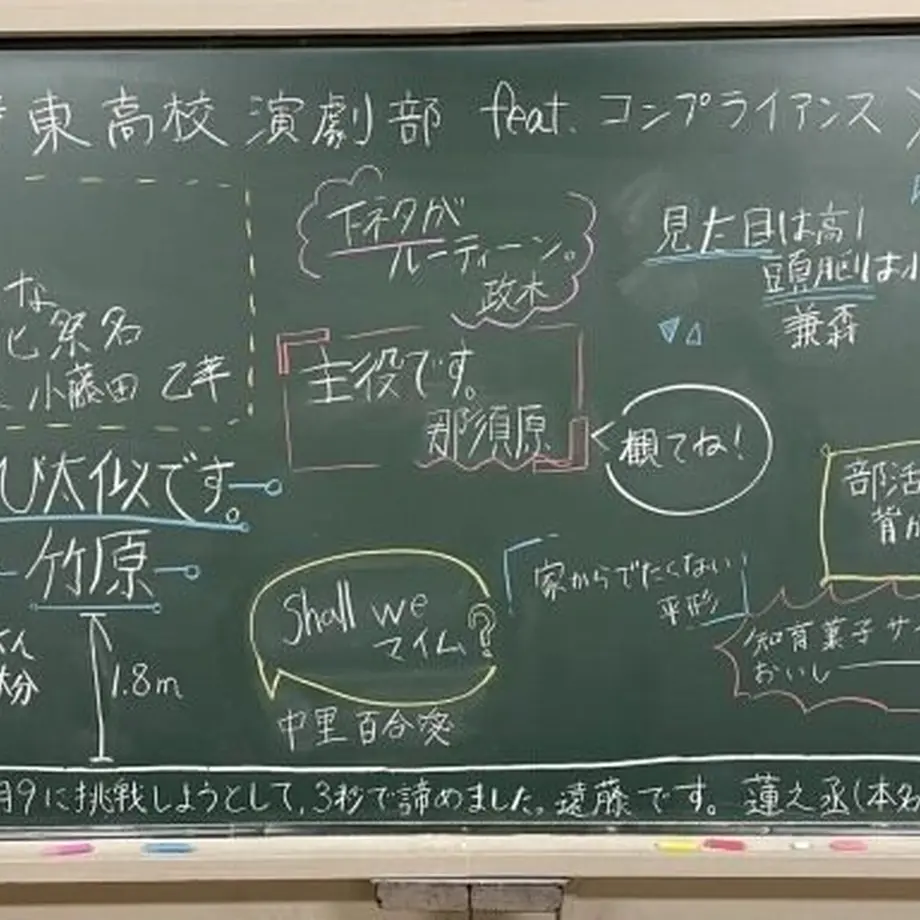 東高校 演劇部 feat. コンプライアンス
下ネタが
ルーティーン。
政木
見た目は高
頭脳は小
兼森
な
祭名
小藤田 乙華
主役です。
那須原
観てね!
び太似です。
竹原
1.8m
Shall we
マイム?
中里百合愛
家からでたくない
平形
部活
背が
知育菓子サ
おいし
月9に挑戦しようとして、3秒で諦めました。遠藤です。蓮之丞(本名